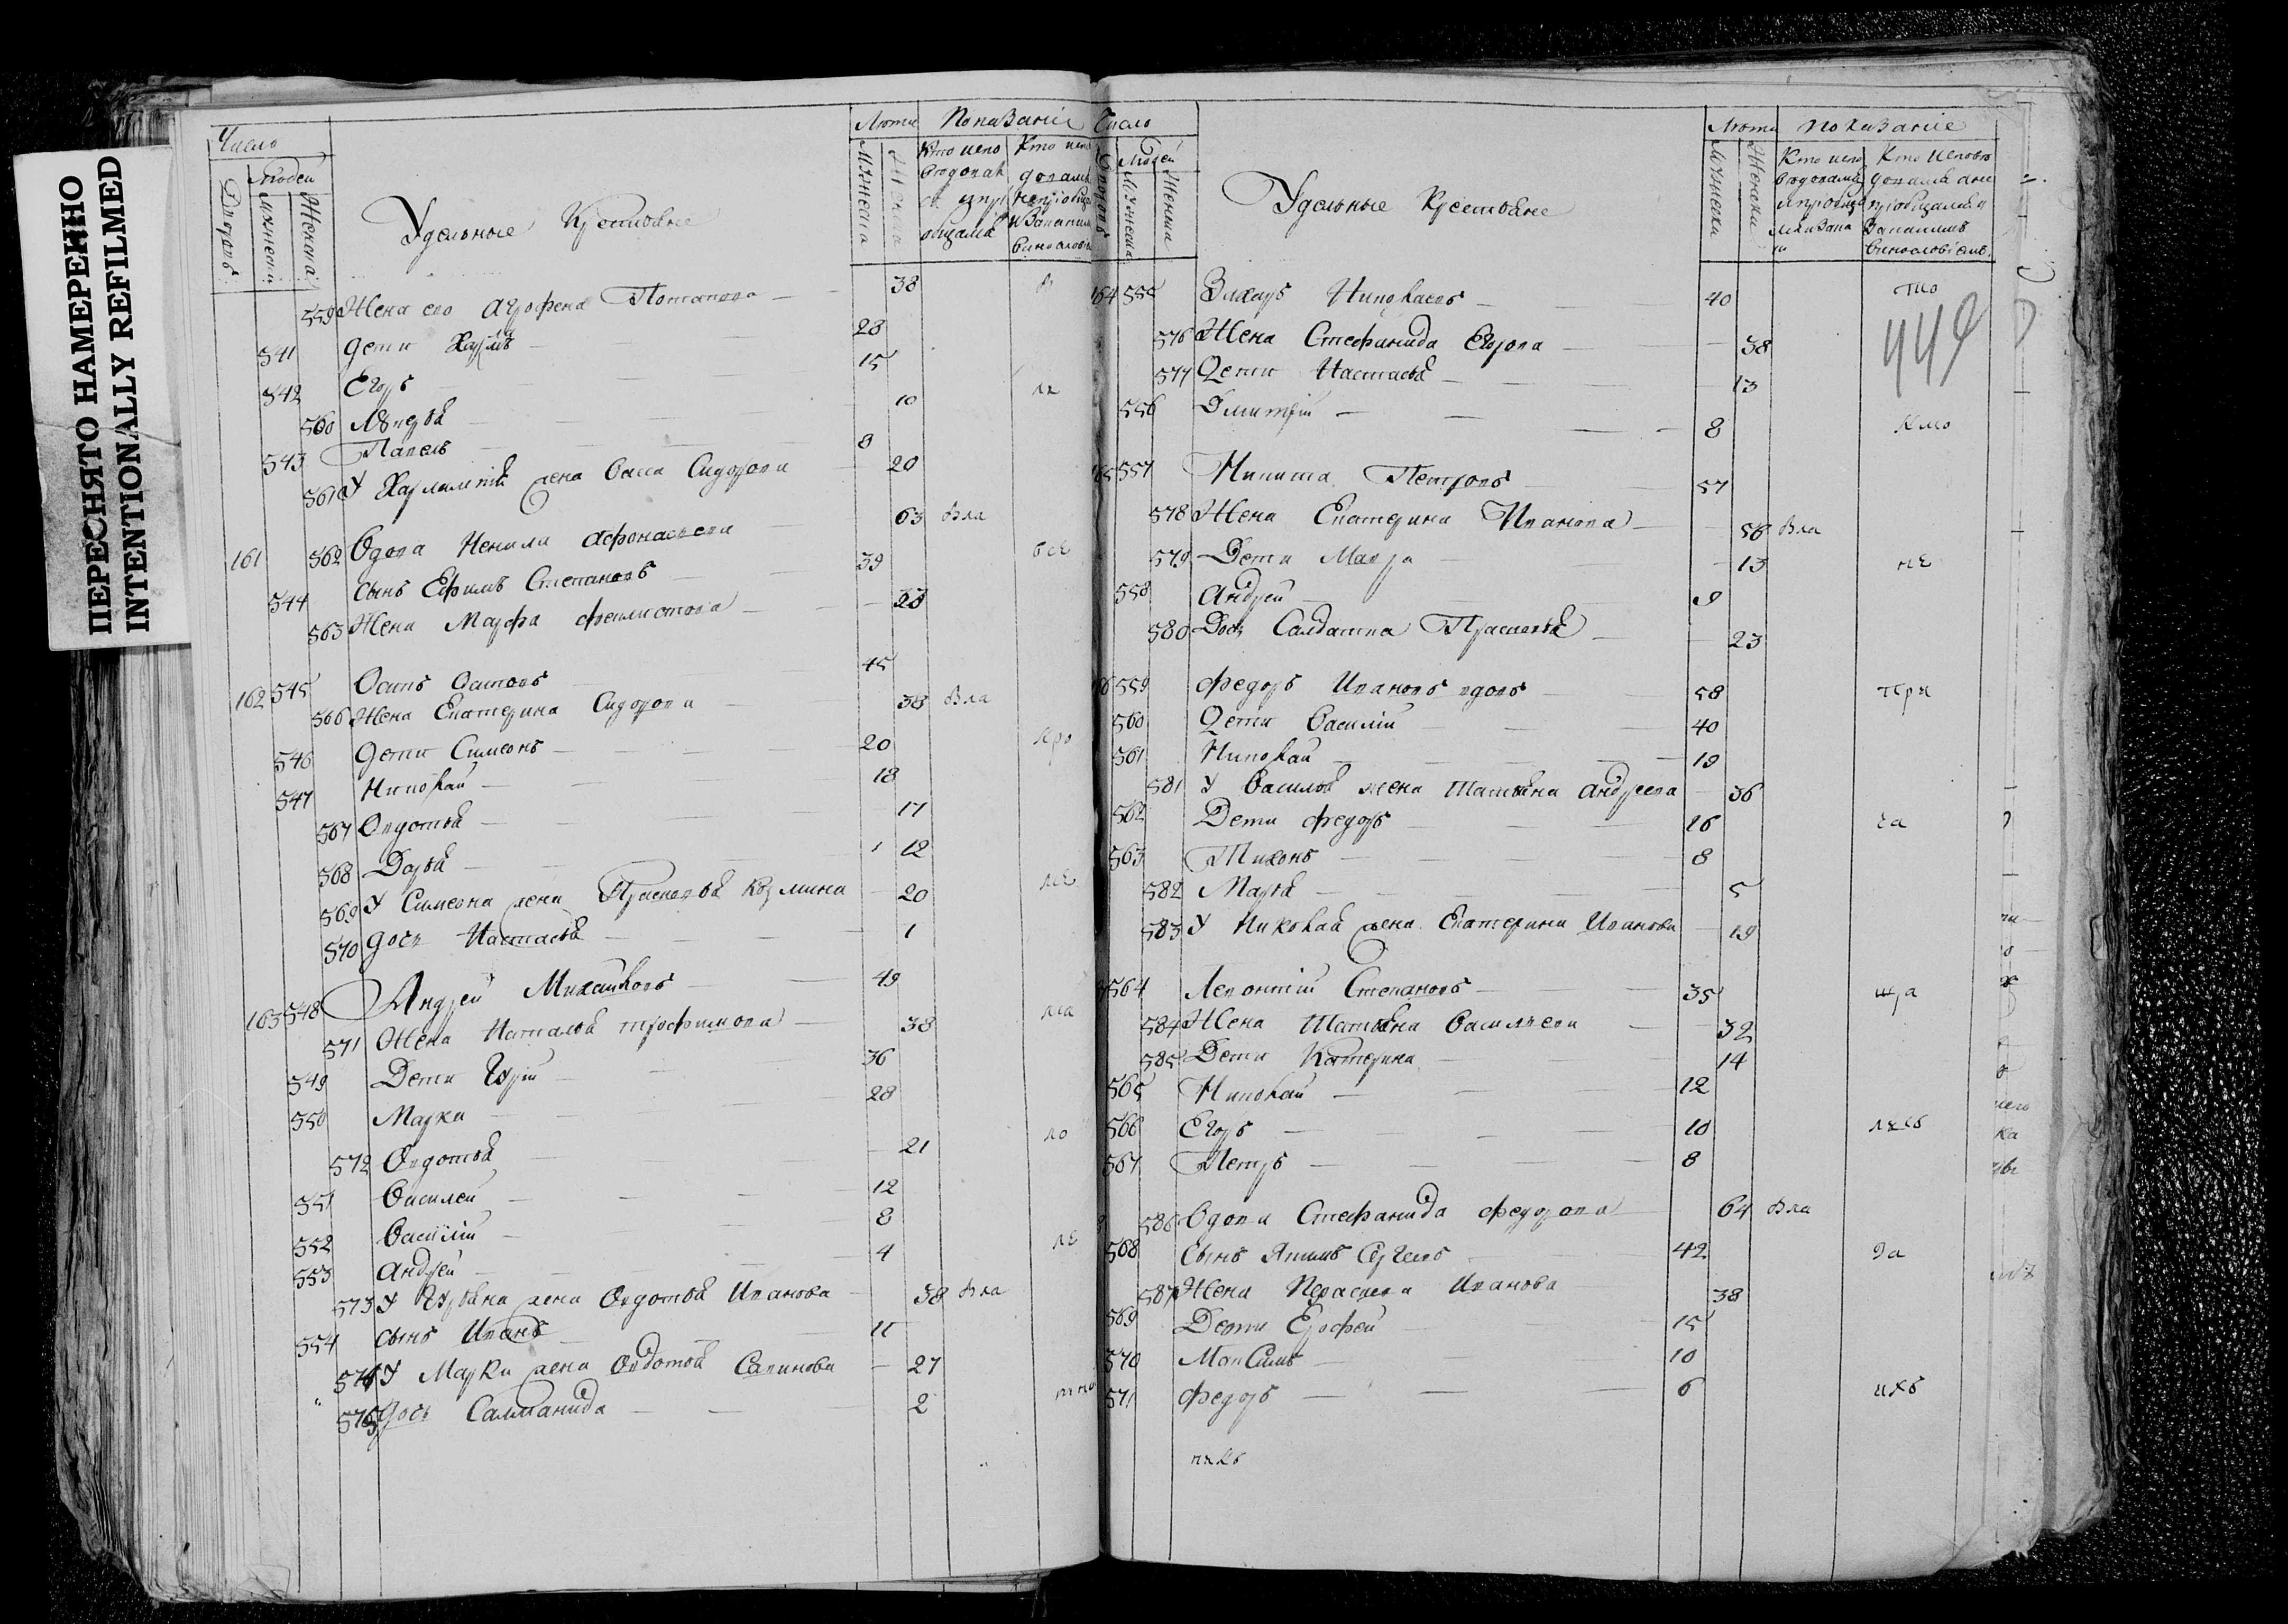 ПЕРЕСНЯТО НАМЕРЕННО
INTENTIONALLY REFILMED
Число
Людей
Дворовъ
Мужеска
Женска
Удельные Крестьяне
Лета
Показаніе
Мужеска
Женска
559 Жена его Агрофена Потапова 38
541 дети Харлм 28
542 Егоръ 15
560 Лукерья 10
543 Павелъ 8
561 У Харлампія жена Васса Сидорова 20
161 562 Вдова Ненила Афонасьева 63 Вла
544 сынъ Ефимъ Степановъ 39
563 Жена Марфа Феклистова 28
162 545 Осипъ Осиповъ 45
566 Жена Екатерина Сидорова 38 Вла
546 дети Симеонъ 20
547 Николай 18
567 Овдотья 17
568 Дарья 12
569 У Симеона жена Прасковья Козмина 20
570 дочь Настасья 1
163 548 Андрей Михайловъ 49
571 Жена Наталья Трофимова 38
549 Дети Гурій 36
550 Марки 28
572 Овдотья 21
551 Василей 12
552 Василій 8
553 Андрей 4
573 У Гурьяна жена Овдотья Иванова 38 Вла
554 сынъ Иванъ 11
574 У Марки жена Овдотья Савинова 27
575 дочь Саломанида 2
Число
Людей
Мужеска
Женска
Удельные Крестьяне
Лета
Показаніе
Мужеска
Женска
449
164 555 Захаръ Николаевъ 40
576 Жена Стефанида Егорова 38
577 Дети Настасья 13
556 Дмитрій 8
165 557 Никита Петровъ 57
578 Жена Екатерина Иванова 56 Вла
579 Дети Мавра 13
558 Андрей 9
580 Дочь Салдатка Прасковья 23
559 Федоръ Ивановъ вдовъ 58
560 Дети Василій 40
561 Николай 19
581 У Василья жена Татьяна Андреева 36
562 Дети Федоръ 16
563 Тихонъ 8
582 Марья 5
583 У Николая жена Екатерина Иванова 19
564 Леонтій Степановъ 35
584 Жена Татьяна Васильева 32
585 Дети Катерина 14
565 Николай 12
566 Егоръ 10
567 Петръ 8
586 Вдова Стефанида Федорова 64 Вла
568 Сынъ Якимъ Сергеевъ 42
587 Жена Параскева Иванова 38
569 Дети Ерофей 15
570 Максимъ 10
571 Федоръ 6